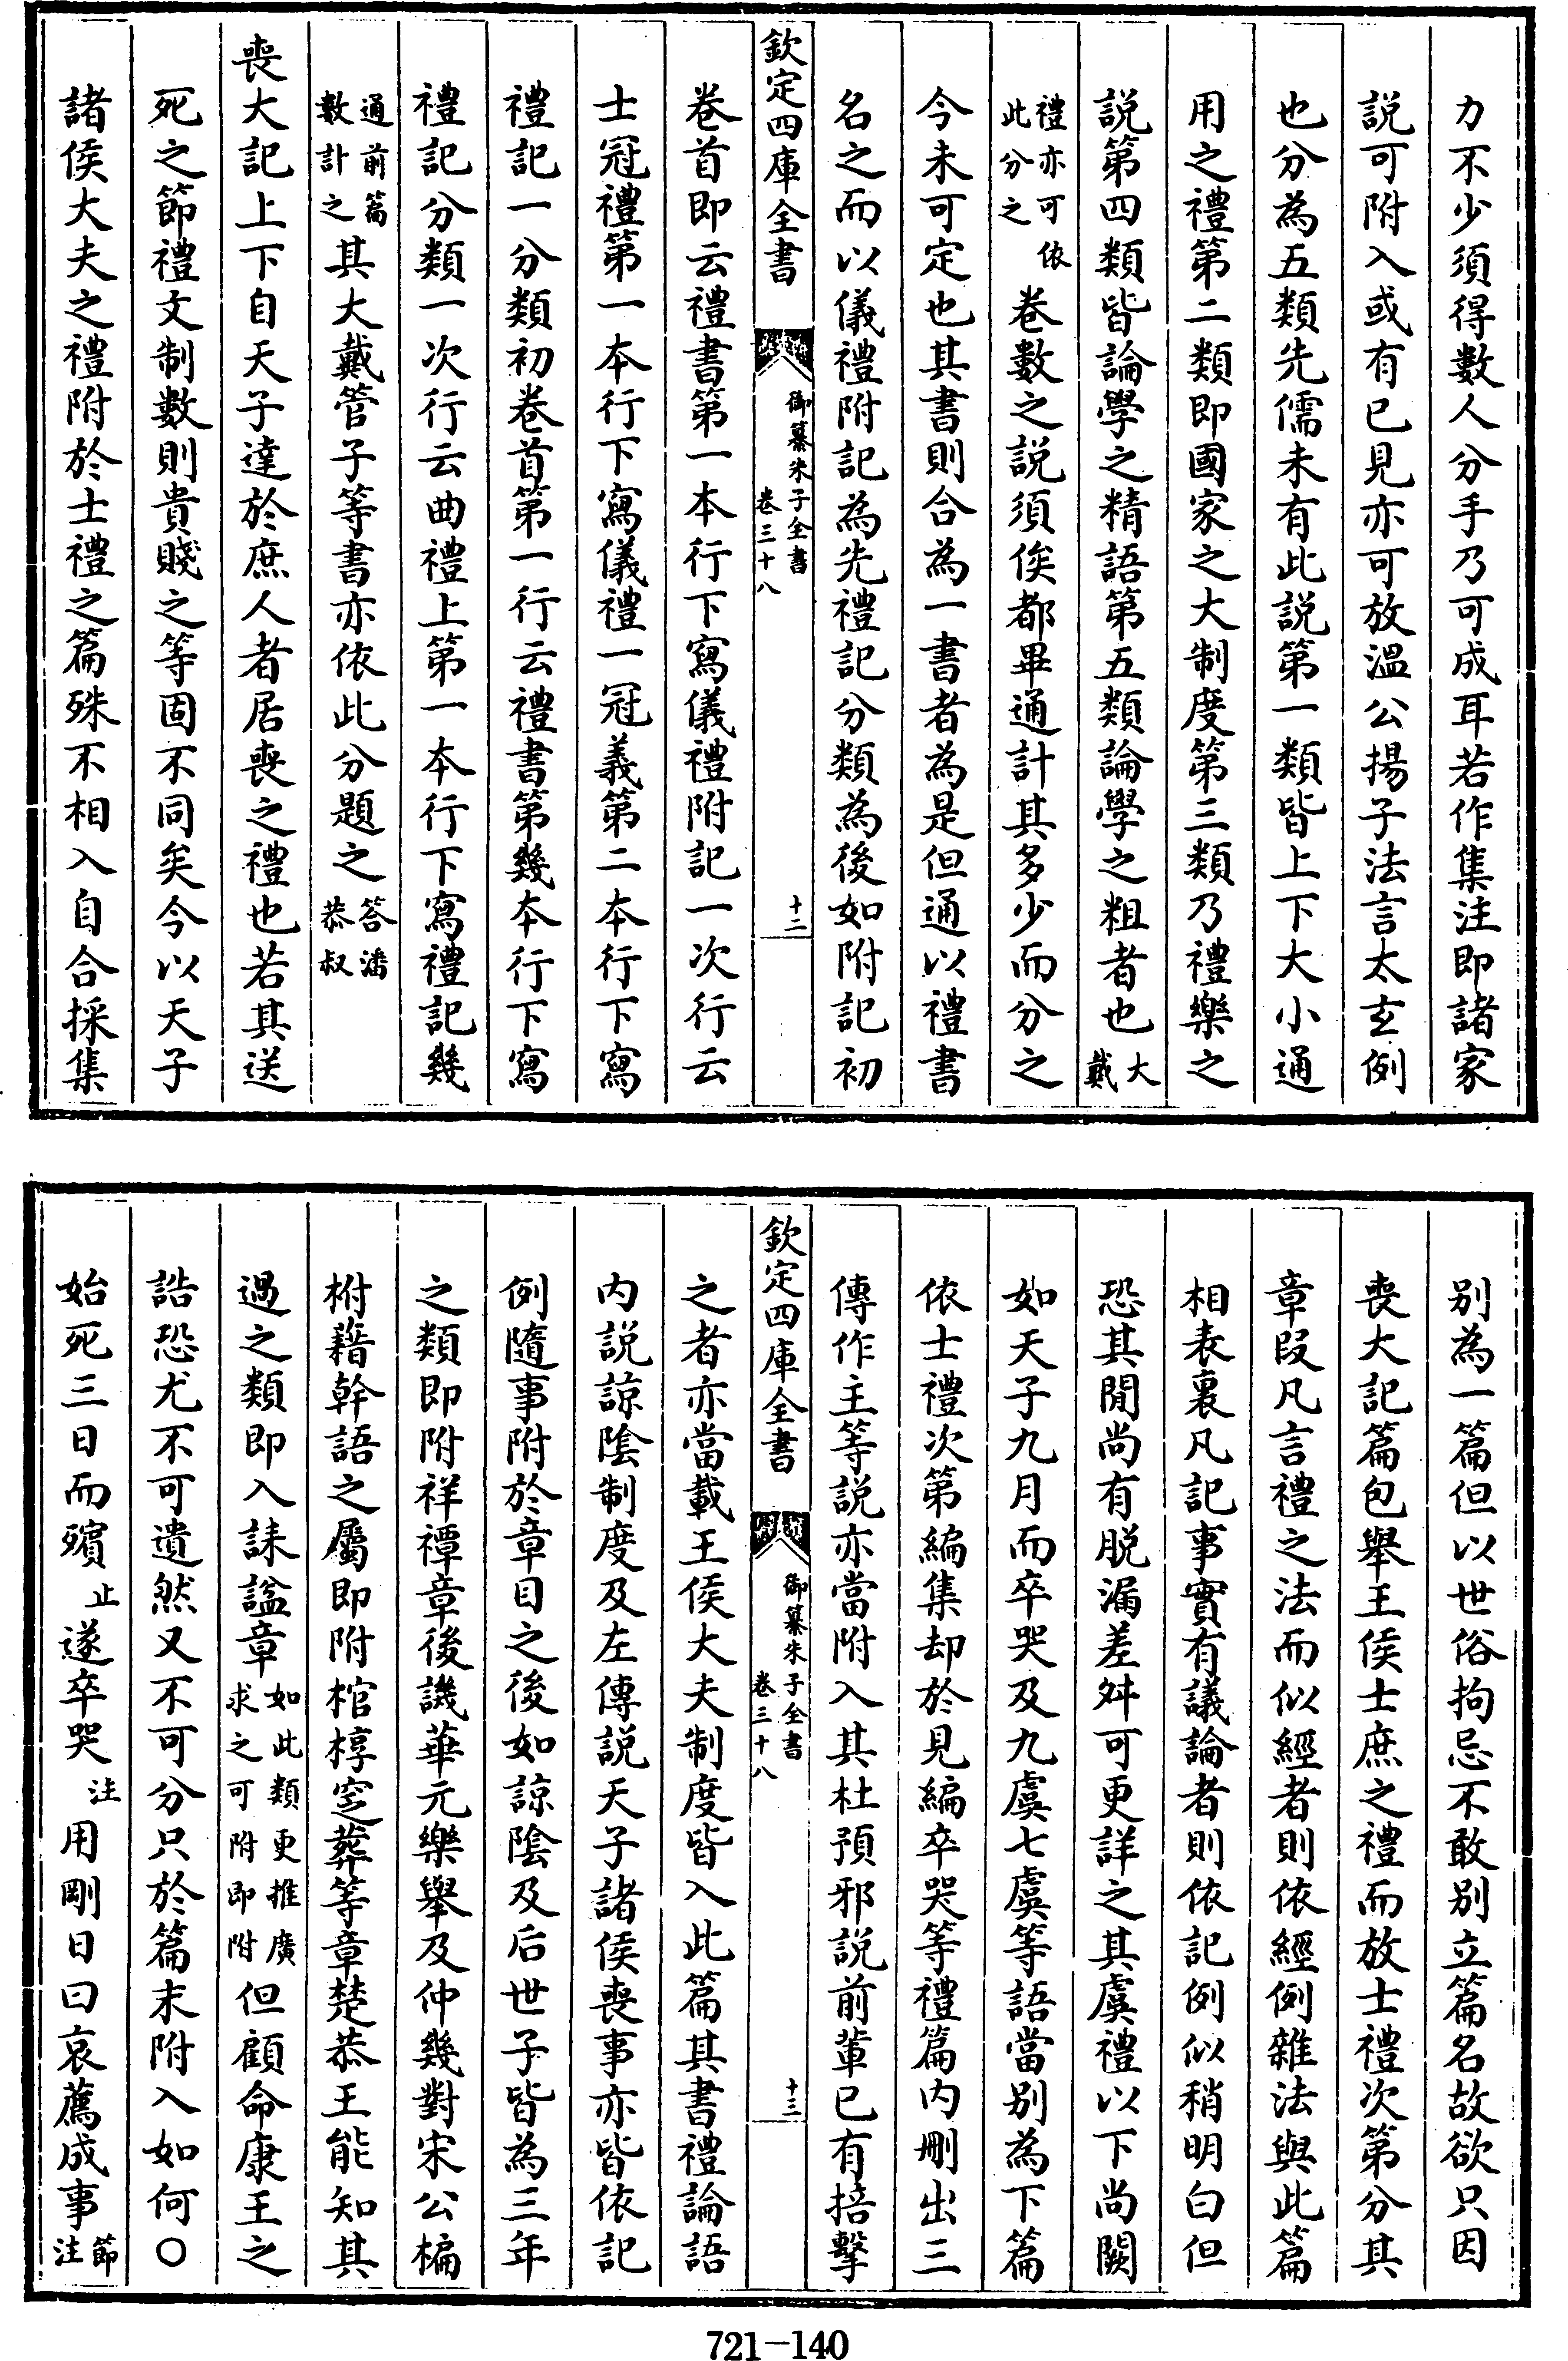 力不少須得數人分手乃可成耳若作集注即諸家
説可附入或有已見亦可放溫公揚子法言太玄例
也分為五類先儒未有此説第一類皆上下大小通
用之禮第二類即國家之大制度第三類乃禮樂之
説第四類皆論學之精語第五類論學之粗者也大戴
禮亦可依此分之卷數之説須俟都畢通計其多少而分之
今未可定也其書則合為一書者為是但通以禮書
名之而以儀禮附記為先禮記分類為後如附記初
欽定四庫全書 御纂朱子全書卷三十八 十二
卷首即云禮書第一本行下寫儀禮附記一次行云
士冠禮第一本行下寫儀禮一冠義第二本行下寫
禮記一分類初卷首第一行云禮書第幾本行下寫
禮記分類一次行云曲禮上第一本行下寫禮記幾
通前篇數計之其大戴管子等書亦依此分題之答潘恭叔
喪大記上下自天子達於庶人者居喪之禮也若其送
死之節禮文制數則貴賤之等固不同矣今以天子
諸侯大夫之禮附於士禮之篇殊不相入自合採集
別為一篇但以世俗拘忌不敢別立篇名故欲只因
喪大記篇包舉王侯士庶之禮而放士禮次第分其
章段凡言禮之法而似經者則依經例雜法與此篇
相表裏凡記事實有議論者則依記例似稍明白但
恐其閒尚有脱漏差舛可更詳之其虞禮以下尚闕
如天子九月而卒哭及九虞七虞等語當別為下篇
依士禮次第編集却於見編卒哭等禮篇内刪出三
傳作主等説亦當附入其杜預邪説前輩已有掊擊
欽定四庫全書 御纂朱子全書卷三十八 十三
之者亦當載王侯大夫制度皆入此篇其書禮論語
内説諒陰制度及左傳説天子諸侯喪事亦皆依記
例隨事附於章目之後如諒陰及后世子皆為三年
之類即附祥禫章後譏華元樂舉及仲幾對宋公楄
柎藉幹語之屬即附棺椁窆葬等章楚恭王能知其
過之類即入誄諡章如此類更推廣求之可附即附但顧命康王之
誥恐尤不可遺然又不可分只於篇末附入如何○
始死三日而殯止遂卒哭注用剛日曰哀薦成事節注
721-140